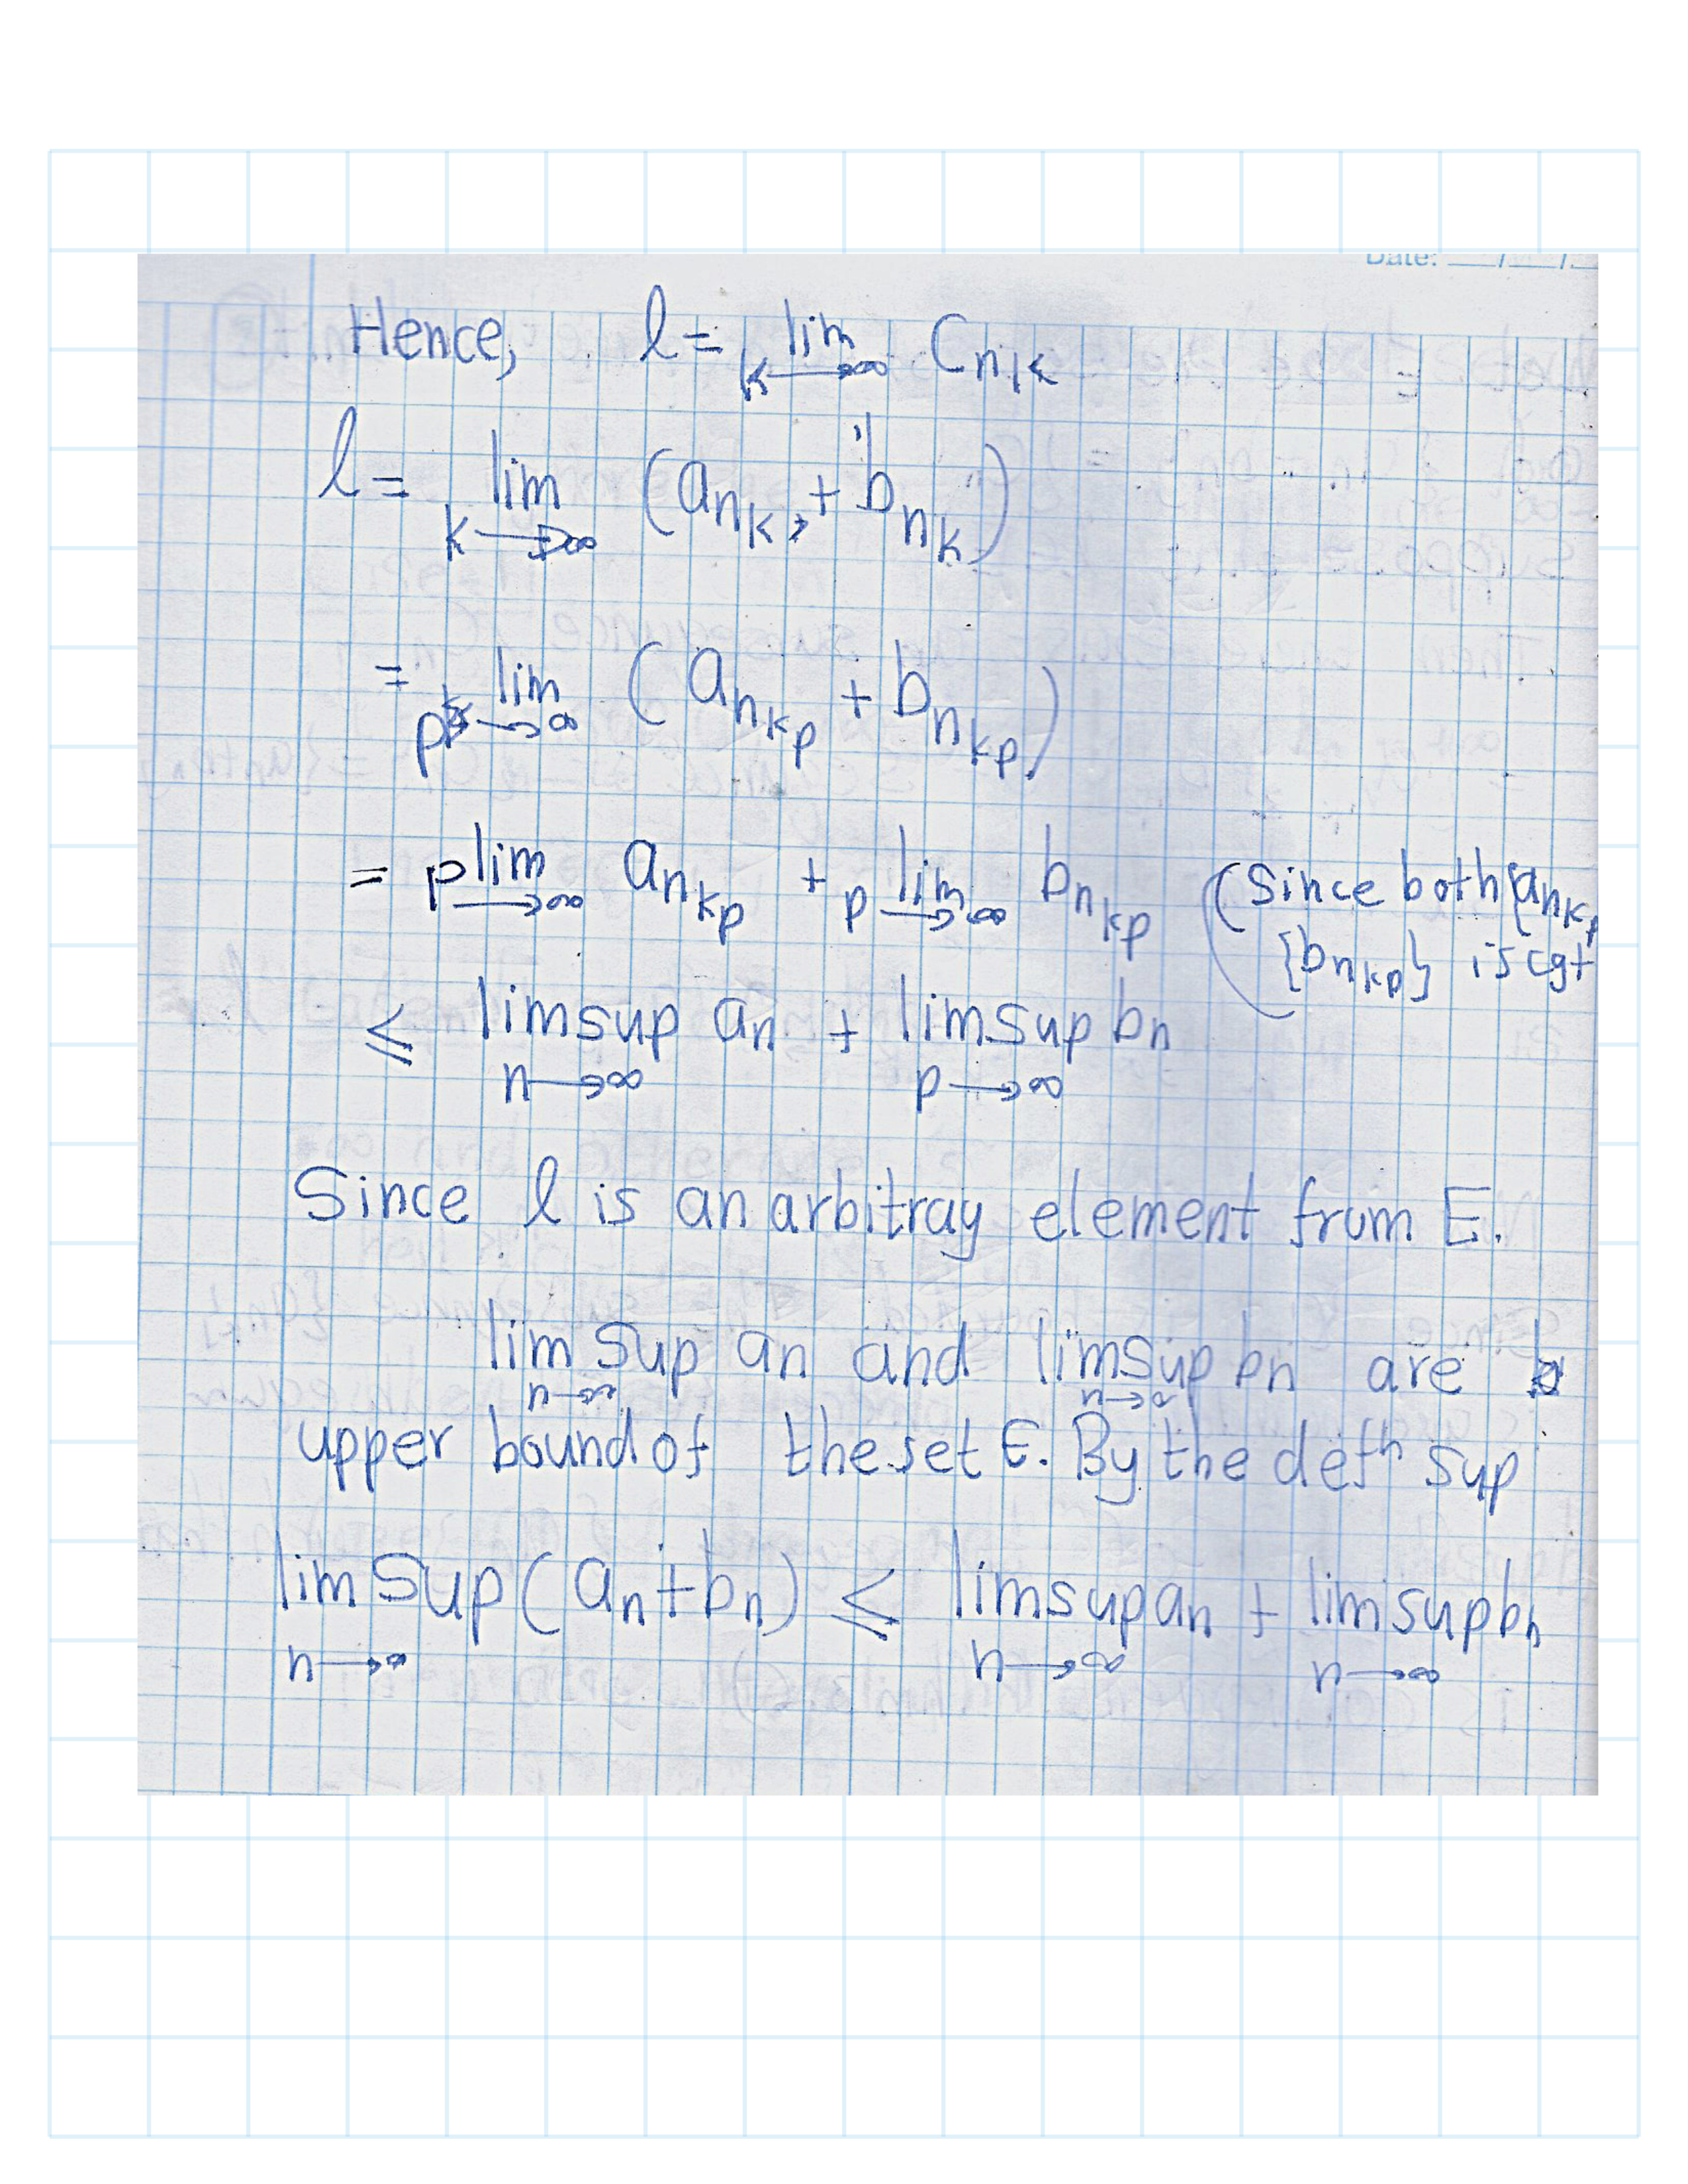 Date: __/__/__
Hence, l = lim k→∞ C_{n_k}
l = lim k→∞ (a_{n_k} + b_{n_k})
= lim p→∞ (a_{n_{k_p}} + b_{n_{k_p}})
= lim p→∞ a_{n_{k_p}} + lim p→∞ b_{n_{k_p}} (Since both {a_{n_{k_p}}
{b_{n_{k_p}}} is cgt
≤ limsup n→∞ a_n + limsup p→∞ b_n
Since l is an arbitray element from E.
lim sup n→∞ a_n and limsup n→∞ b_n are
upper bound of the set E. By the defn sup
lim sup n→∞ (a_n + b_n) ≤ limsup n→∞ a_n + limsup n→∞ b_n